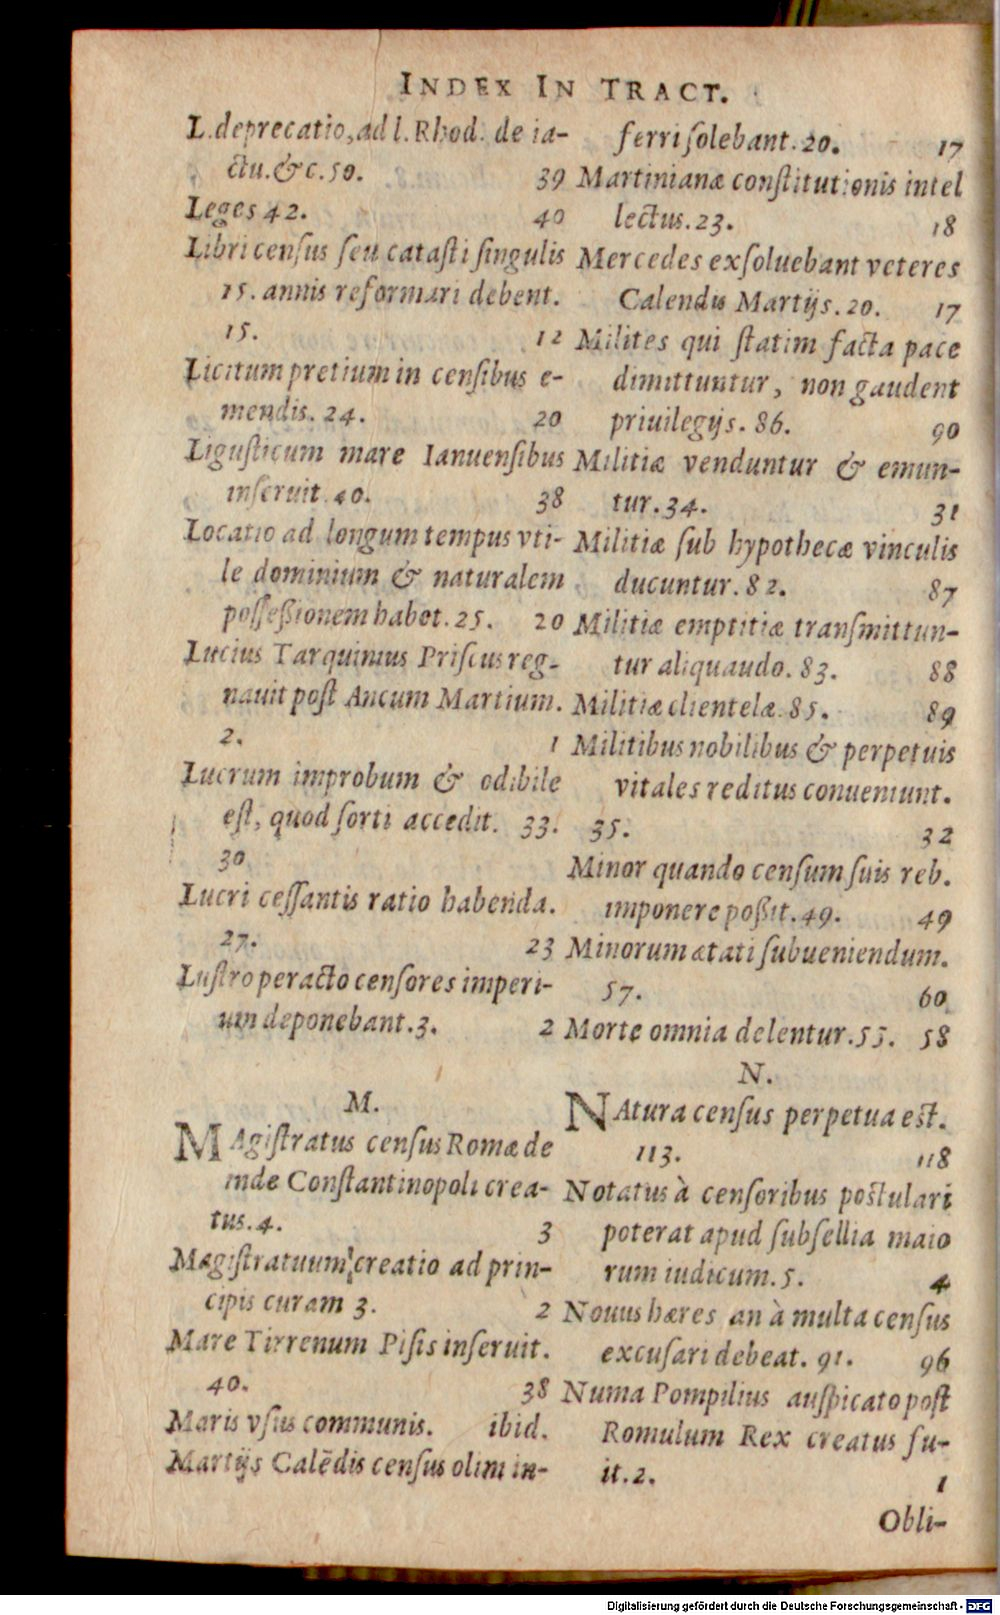 INDEX IN TRACT.
L.deprecatio, ad l. Rhod. de ia-
ctu. &c. 50. 39
Leges 42. 40
Libri census seu catasti singulis
15. annis reformari debent.
15. 12
Licitum pretium in censibus e-
mendis. 24. 20
Ligusticum mare Ianuensibus
inseruit. 40. 38
Locatio ad longum tempus vti-
le dominium & naturalem
possessionem habet. 25. 20
Lucius Tarquinius Priscus reg-
nauit post Ancum Martium.
2. 1
Lucrum improbum & odibile
est, quod sorti accedit. 33.
30
Lucri cessantis ratio habenda.
27. 23
Lustro peracto censores imperi-
um deponebant. 3. 2
M.
MAgistratus census Romæ de
inde Constantinopoli crea-
tus. 4. 3
Magistratuum creatio ad prin-
cipis curam 3. 2
Mare Tirrenum Pisis inseruit.
40. 38
Maris vsus communis. ibid.
Martijs Calēdis census olim in-
ferri solebant. 20. 17
Martinianæ constitutionis intel
lectus. 23. 18
Mercedes exsoluebant veteres
Calendis Martijs. 20. 17
Milites qui statim facta pace
dimittuntur, non gaudent
priuilegijs. 86. 90
Militiæ venduntur & emun-
tur. 34. 31
Militiæ sub hypothecæ vinculis
ducuntur. 82. 87
Militiæ emptitiæ transmittun-
tur aliquaudo. 83. 88
Militiæ clientelæ. 85. 89
Militibus nobilibus & perpetuis
vitales reditus conueniunt.
35. 32
Minor quando censum suis reb.
imponere poßit. 49. 49
Minorum ætati subueniendum.
57. 60
Morte omnia delentur. 55. 58
N.
NAtura census perpetua est.
113. 118
Notatus à censoribus postulari
poterat apud subsellia maio
rum iudicum. 5. 4
Nouus hæres an à multa census
excusari debeat. 91. 96
Numa Pompilius auspicato post
Romulum Rex creatus fu-
it. 2. 1
Obli-
Digitalisierung gefördert durch die Deutsche Forschungsgemeinschaft - DFG